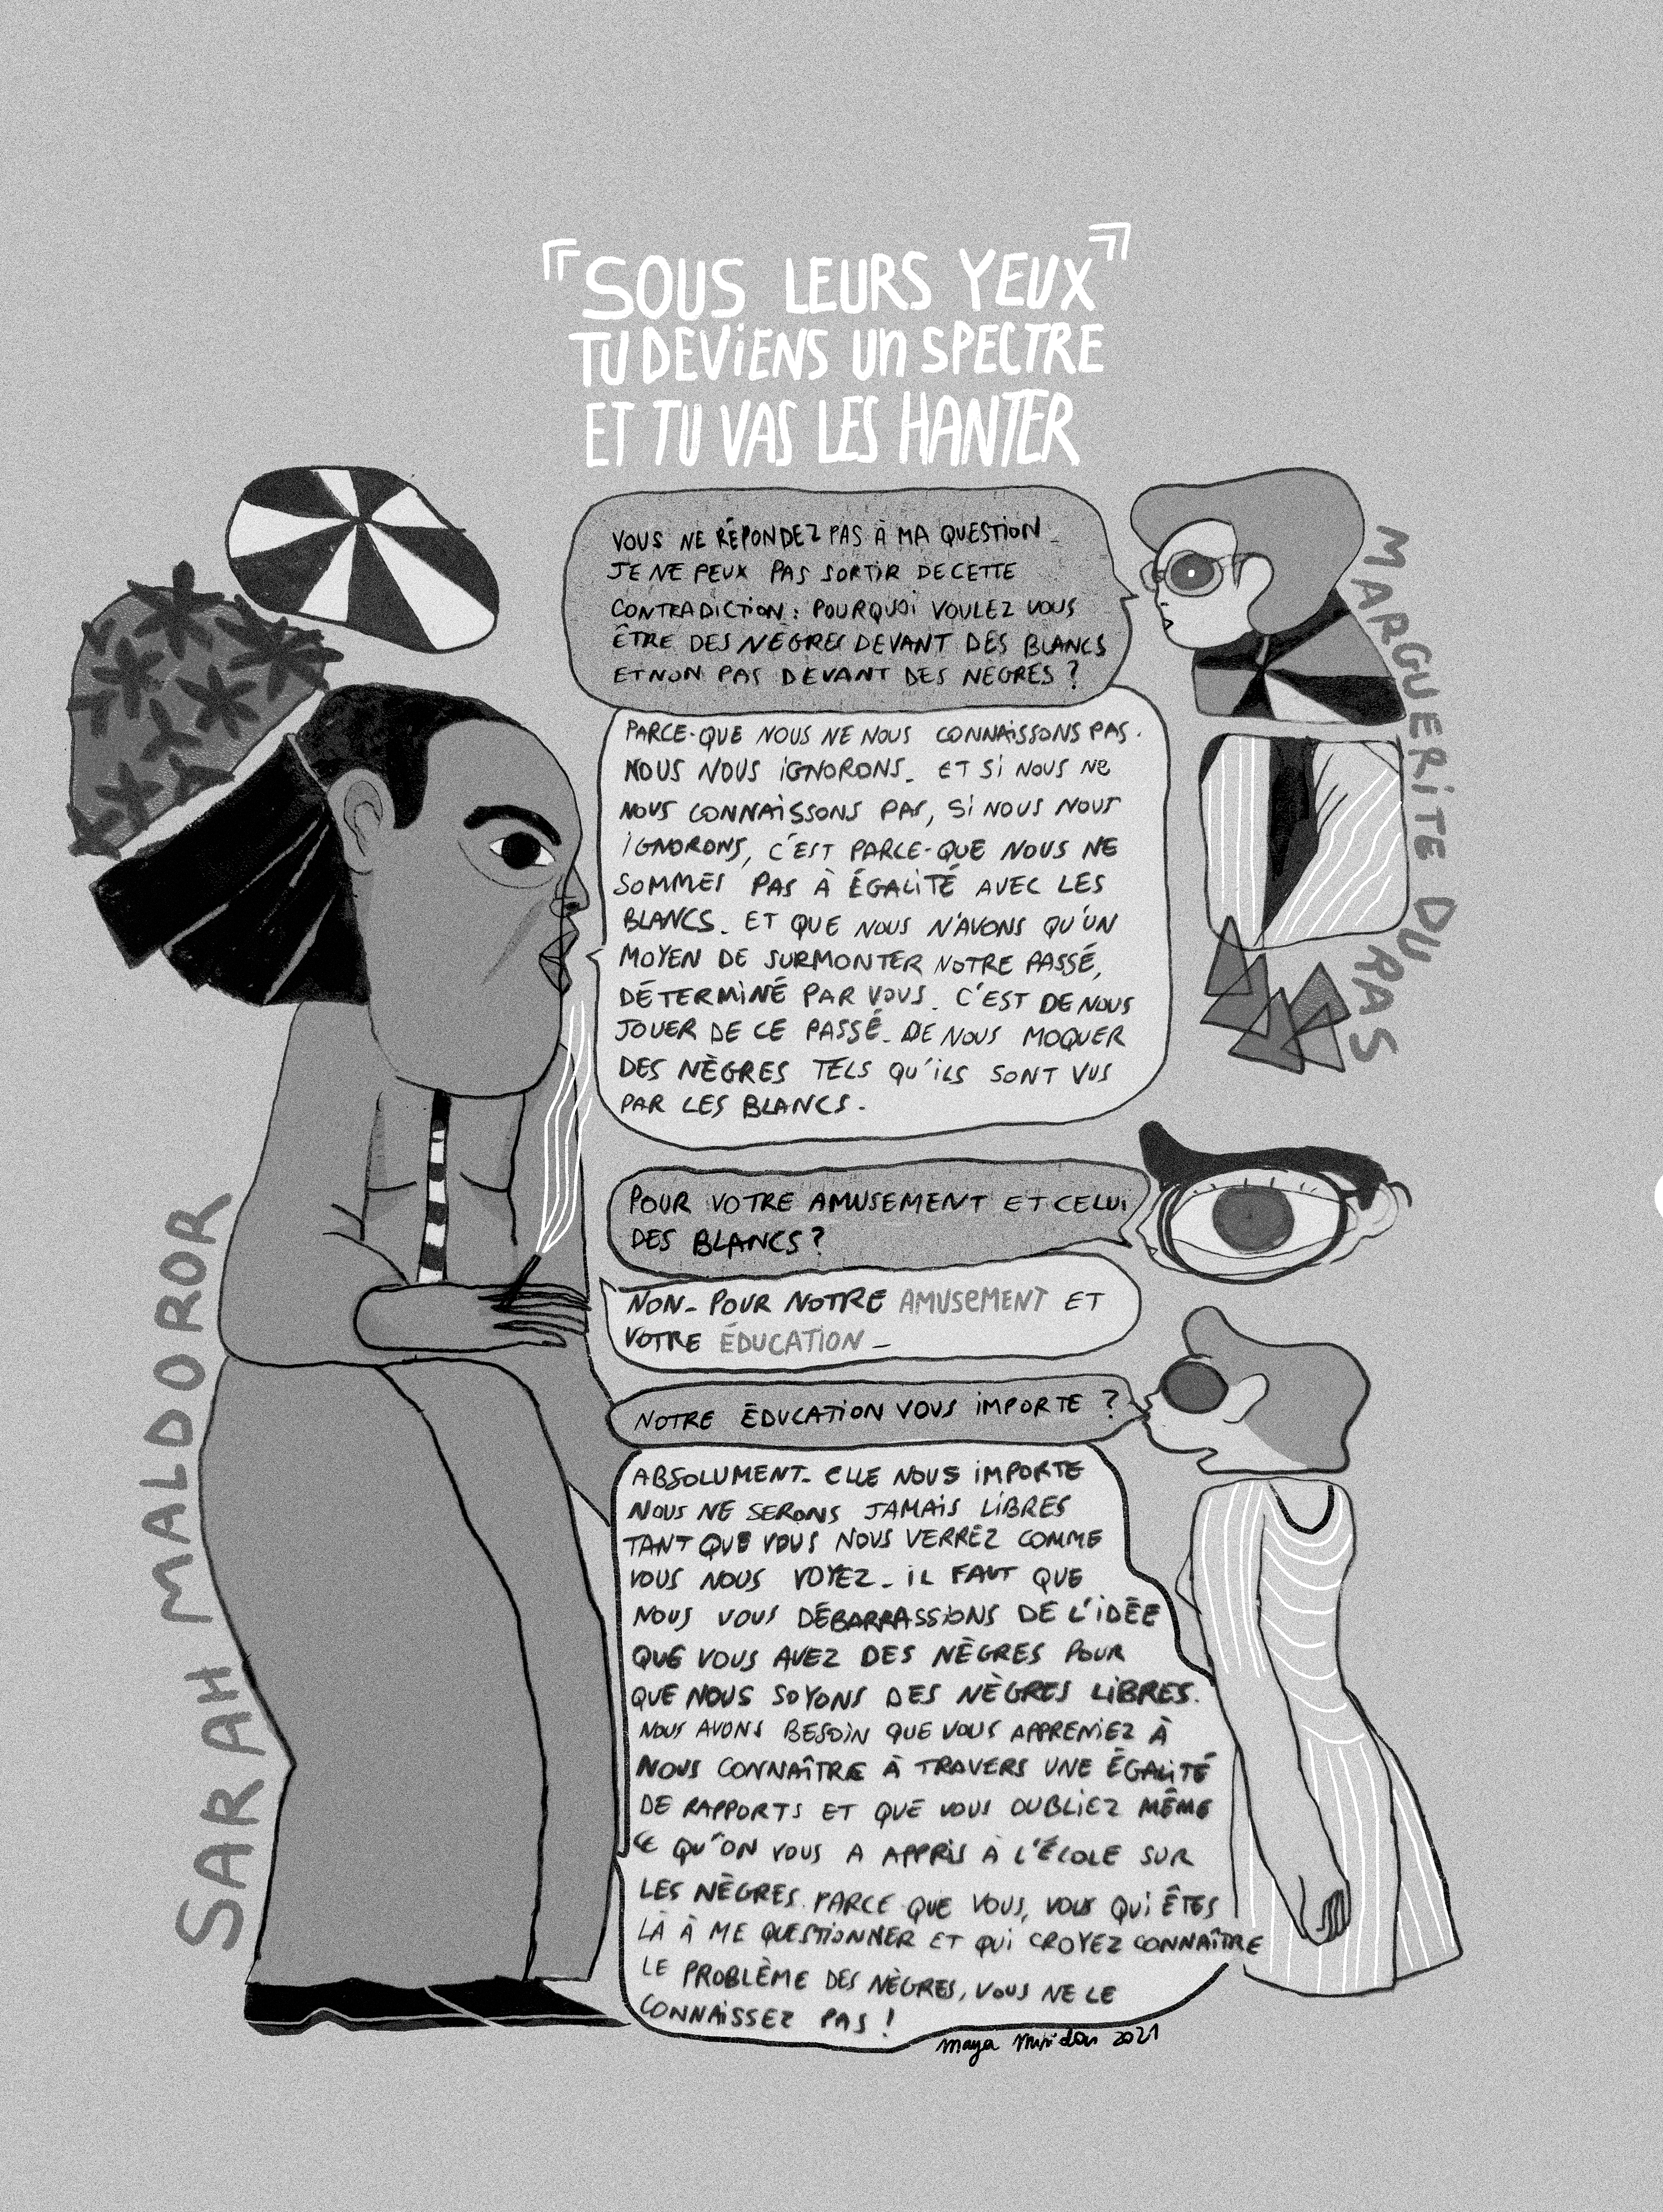 「SOUS LEURS YEUX」
TU DEVIENS UN SPECTRE
ET TU VAS LES HANTER
VOUS NE RÉPONDEZ PAS À MA QUESTION_
JE NE PEUX PAS SORTIR DE CETTE
CONTRADICTION : POURQUOI VOULEZ VOUS
ÊTRE DES NÈGRES DEVANT DES BLANCS
ET NON PAS DEVANT DES NEGRES ?
PARCE-QUE NOUS NE NOUS CONNAISSONS PAS.
NOUS NOUS IGNORONS_ ET SI NOUS NE
NOUS CONNAISSONS PAS, SI NOUS NOUS
IGNORONS, C'EST PARCE-QUE NOUS NE
SOMMES PAS À ÉGALITÉ AVEC LES
BLANCS. ET QUE NOUS N'AVONS QU'UN
MOYEN DE SURMONTER NOTRE PASSÉ,
DÉTERMINÉ PAR VOUS. C'EST DE NOUS
JOUER DE CE PASSÉ_ DE NOUS MOQUER
DES NÈGRES TELS QU'ILS SONT VUS
PAR LES BLANCS.
POUR VOTRE AMUSEMENT ET CELUI
DES BLANCS ?
NON_ POUR NOTRE AMUSEMENT ET
VOTRE ÉDUCATION_
NOTRE ÉDUCATION VOUS IMPORTE ?
ABSOLUMENT_ ELLE NOUS IMPORTE
NOUS NE SERONS JAMAIS LIBRES
TANT QUE VOUS NOUS VERREZ COMME
VOUS NOUS VOYEZ_ IL FAUT QUE
NOUS VOUS DÉBARRASSIONS DE L'IDÉE
QUE VOUS AVEZ DES NÈGRES POUR
QUE NOUS SOYONS DES NÈGRES LIBRES.
NOUS AVONS BESOIN QUE VOUS APPRENIEZ À
NOUS CONNAÎTRE À TRAVERS UNE ÉGALITÉ
DE RAPPORTS ET QUE VOUS OUBLIEZ MÊME
CE QU'ON VOUS A APPRIS À L'ÉCOLE SUR
LES NÈGRES. PARCE QUE VOUS, VOUS QUI ÊTES
LÀ À ME QUESTIONNER ET QUI CROYEZ CONNAÎTRE
LE PROBLÈME DES NÈGRES, VOUS NE LE
CONNAISSEZ PAS !
SARAH MALDOROR
MARGUERITE DU PAS
Maya 2021